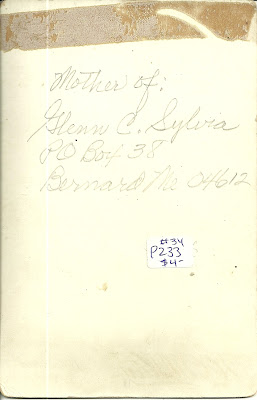 Mother of:
Glenn C. Sylvia
PO Box 38
Bernard Me 04612
#34
P233
$4-